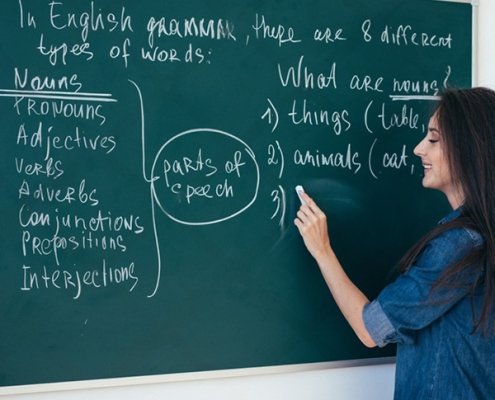 In English grammar, there are 8 different
types of words:
Nouns
Pronouns
Adjectives
Verbs
Adverbs
Conjunctions
Prepositions
Interjections
parts of
speech
What are nouns?
1) things (table,
2) animals (cat,
3)